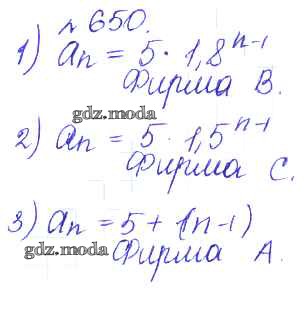 № 650.
1) an = 5 · 1,8^n-1
Фирма В.
gdz.moda
2) an = 5 · 1,5^n-1
Фирма С.
3) an = 5 + (n-1)
gdz.moda
Фирма А.